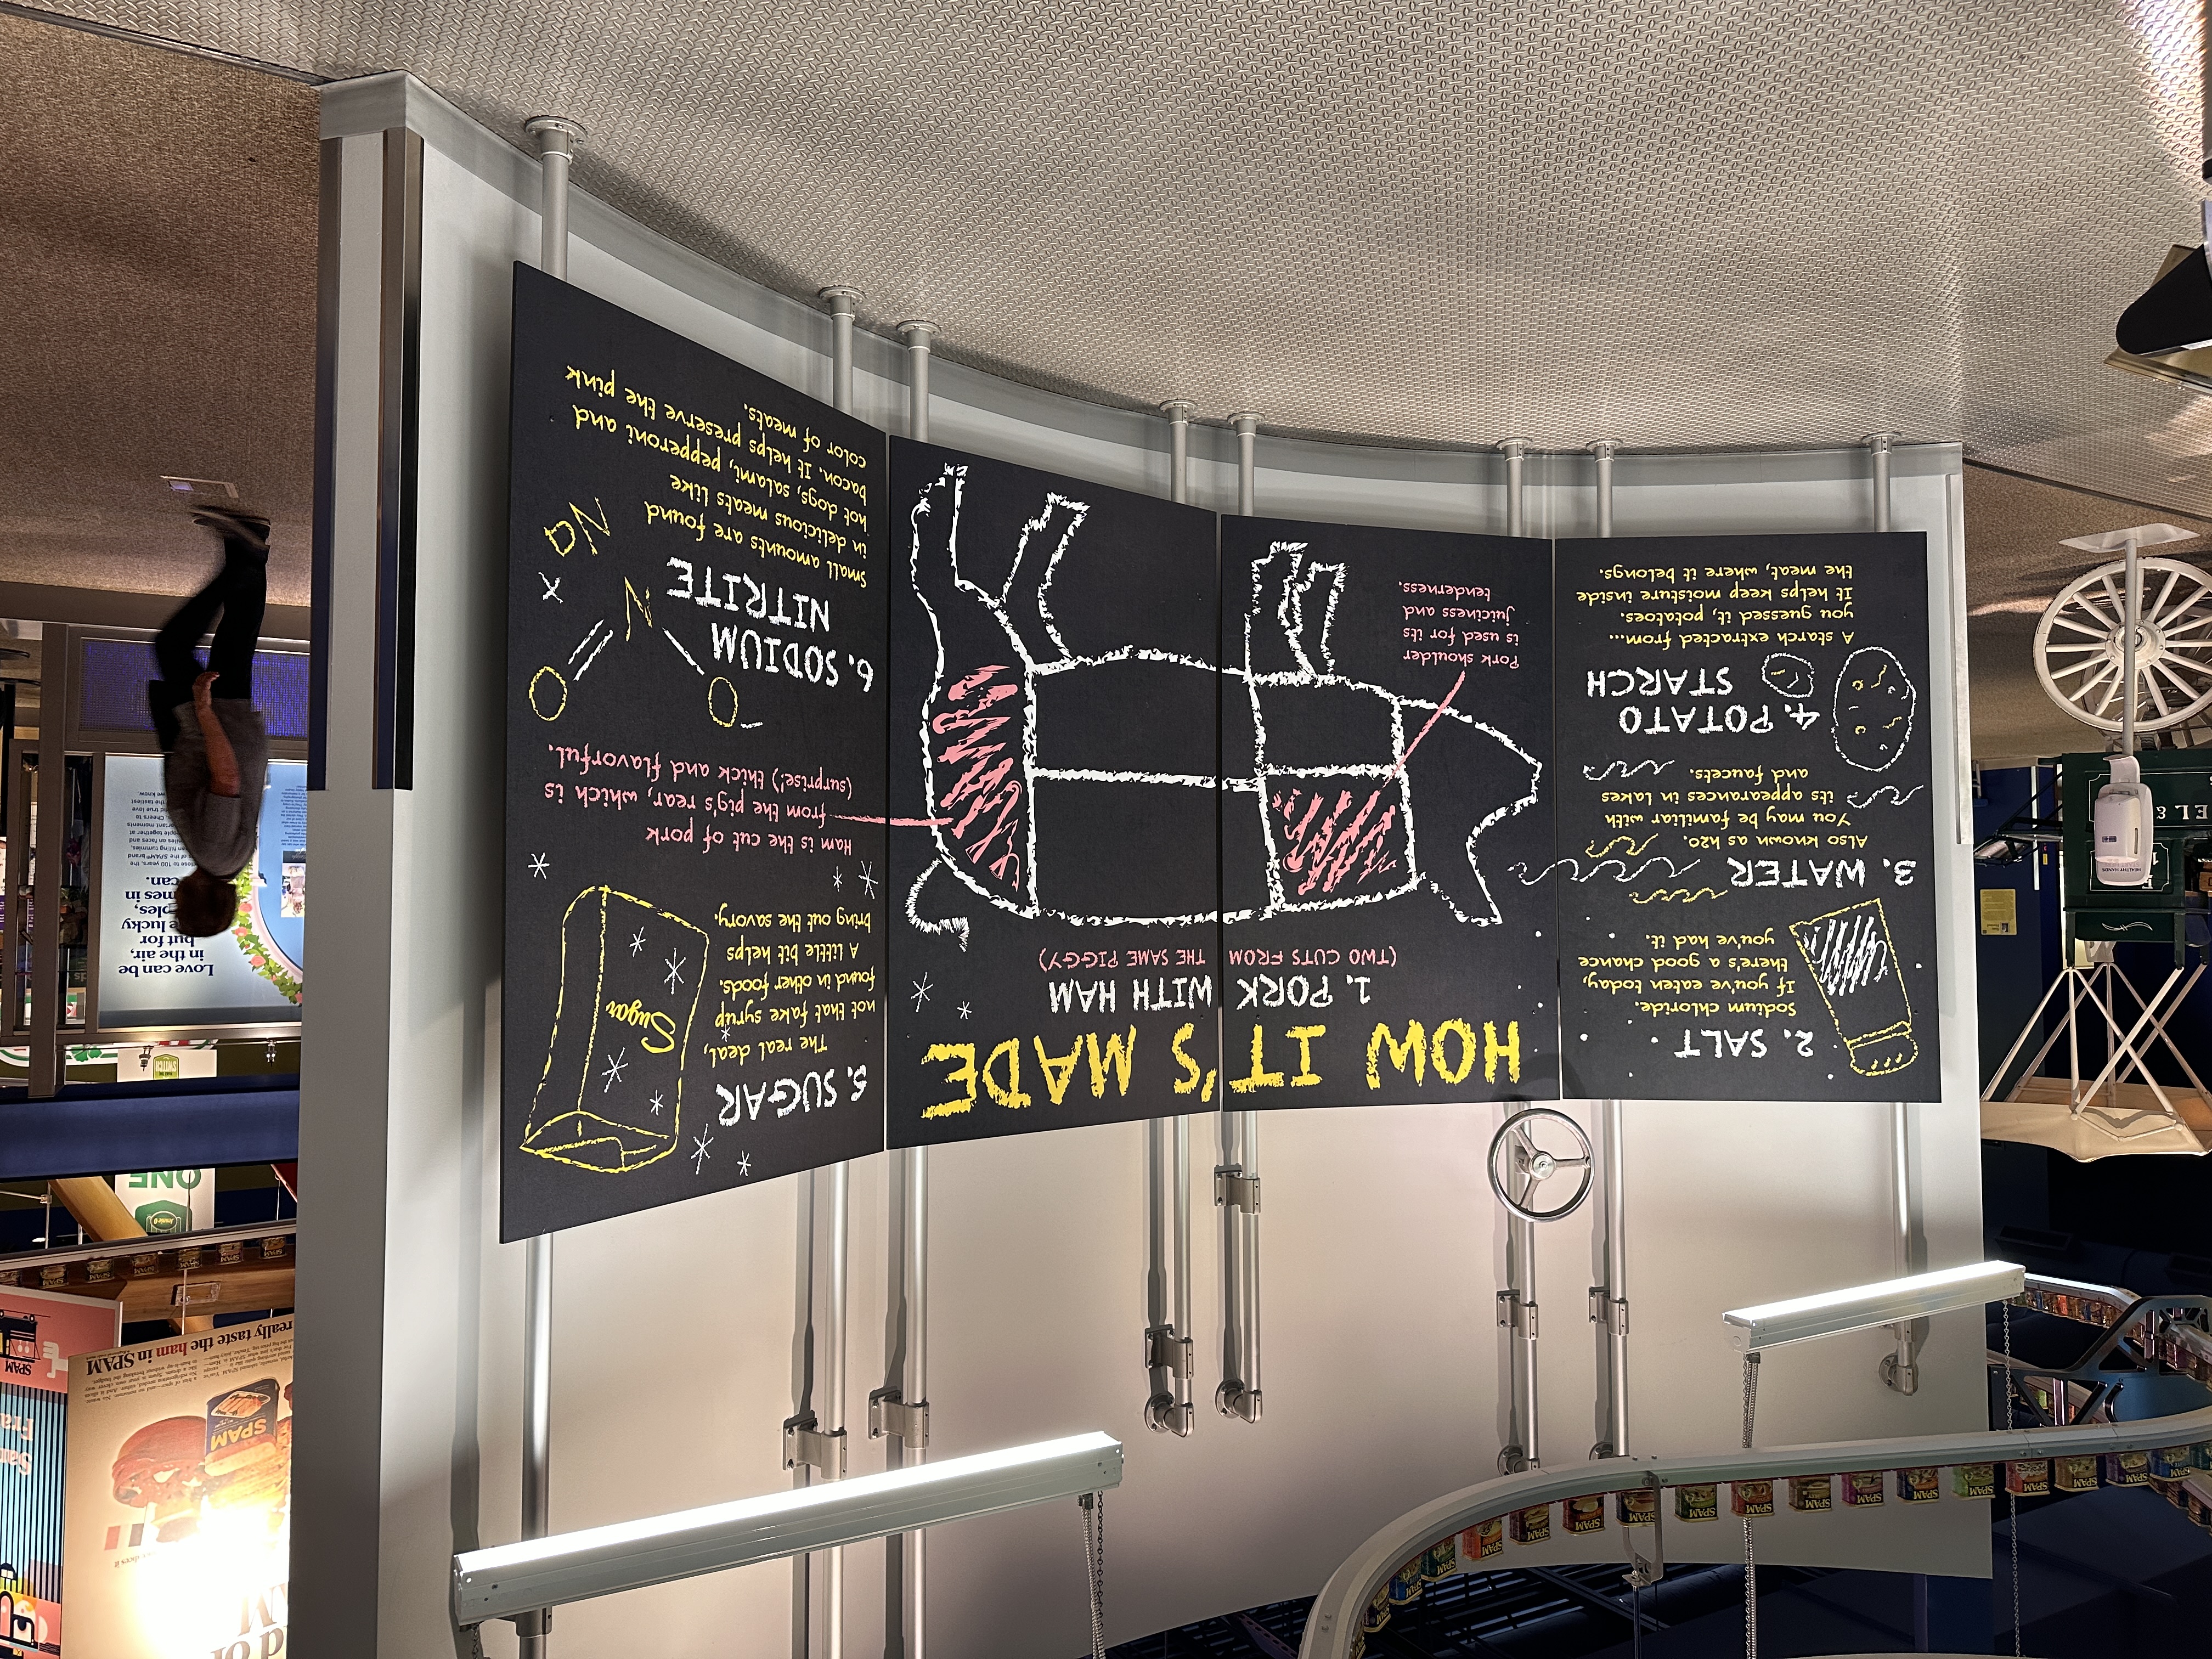 HOW IT'S MADE
1. PORK WITH HAM
(TWO CUTS FROM THE SAME PIGGY)
Pork shoulder
is used for its
juiciness and
tenderness.
2. SALT
Sodium chloride.
If you've eaten today,
there's a good chance
you've had it.
3. WATER
Also known as h2o.
You may be familiar with
its appearances in lakes
and faucets.
4. POTATO
STARCH
A starch extracted from...
you guessed it, potatoes.
It helps keep moisture inside
the meat, where it belongs.
5. SUGAR
The real deal,
not that fake syrup
found in other foods.
A little bit helps
bring out the savory.
Sugar
Ham is the cut of pork
from the pig's rear, which is
(surprise!) thick and flavorful.
6. SODIUM
NITRITE
Small amounts are found
in delicious meats like
hot dogs, salami, pepperoni and
bacon. It helps preserve the pink
color of meats.
O
N
O
Na
Love can be
in the air,
but for
lucky
in
can.
ONE
really taste the ham in SPAM
SPAM
SPAM
SPAM
SPAM
SPAM
SPAM
SPAM
SPAM
SPAM
HEALTHY HANDS
EL &